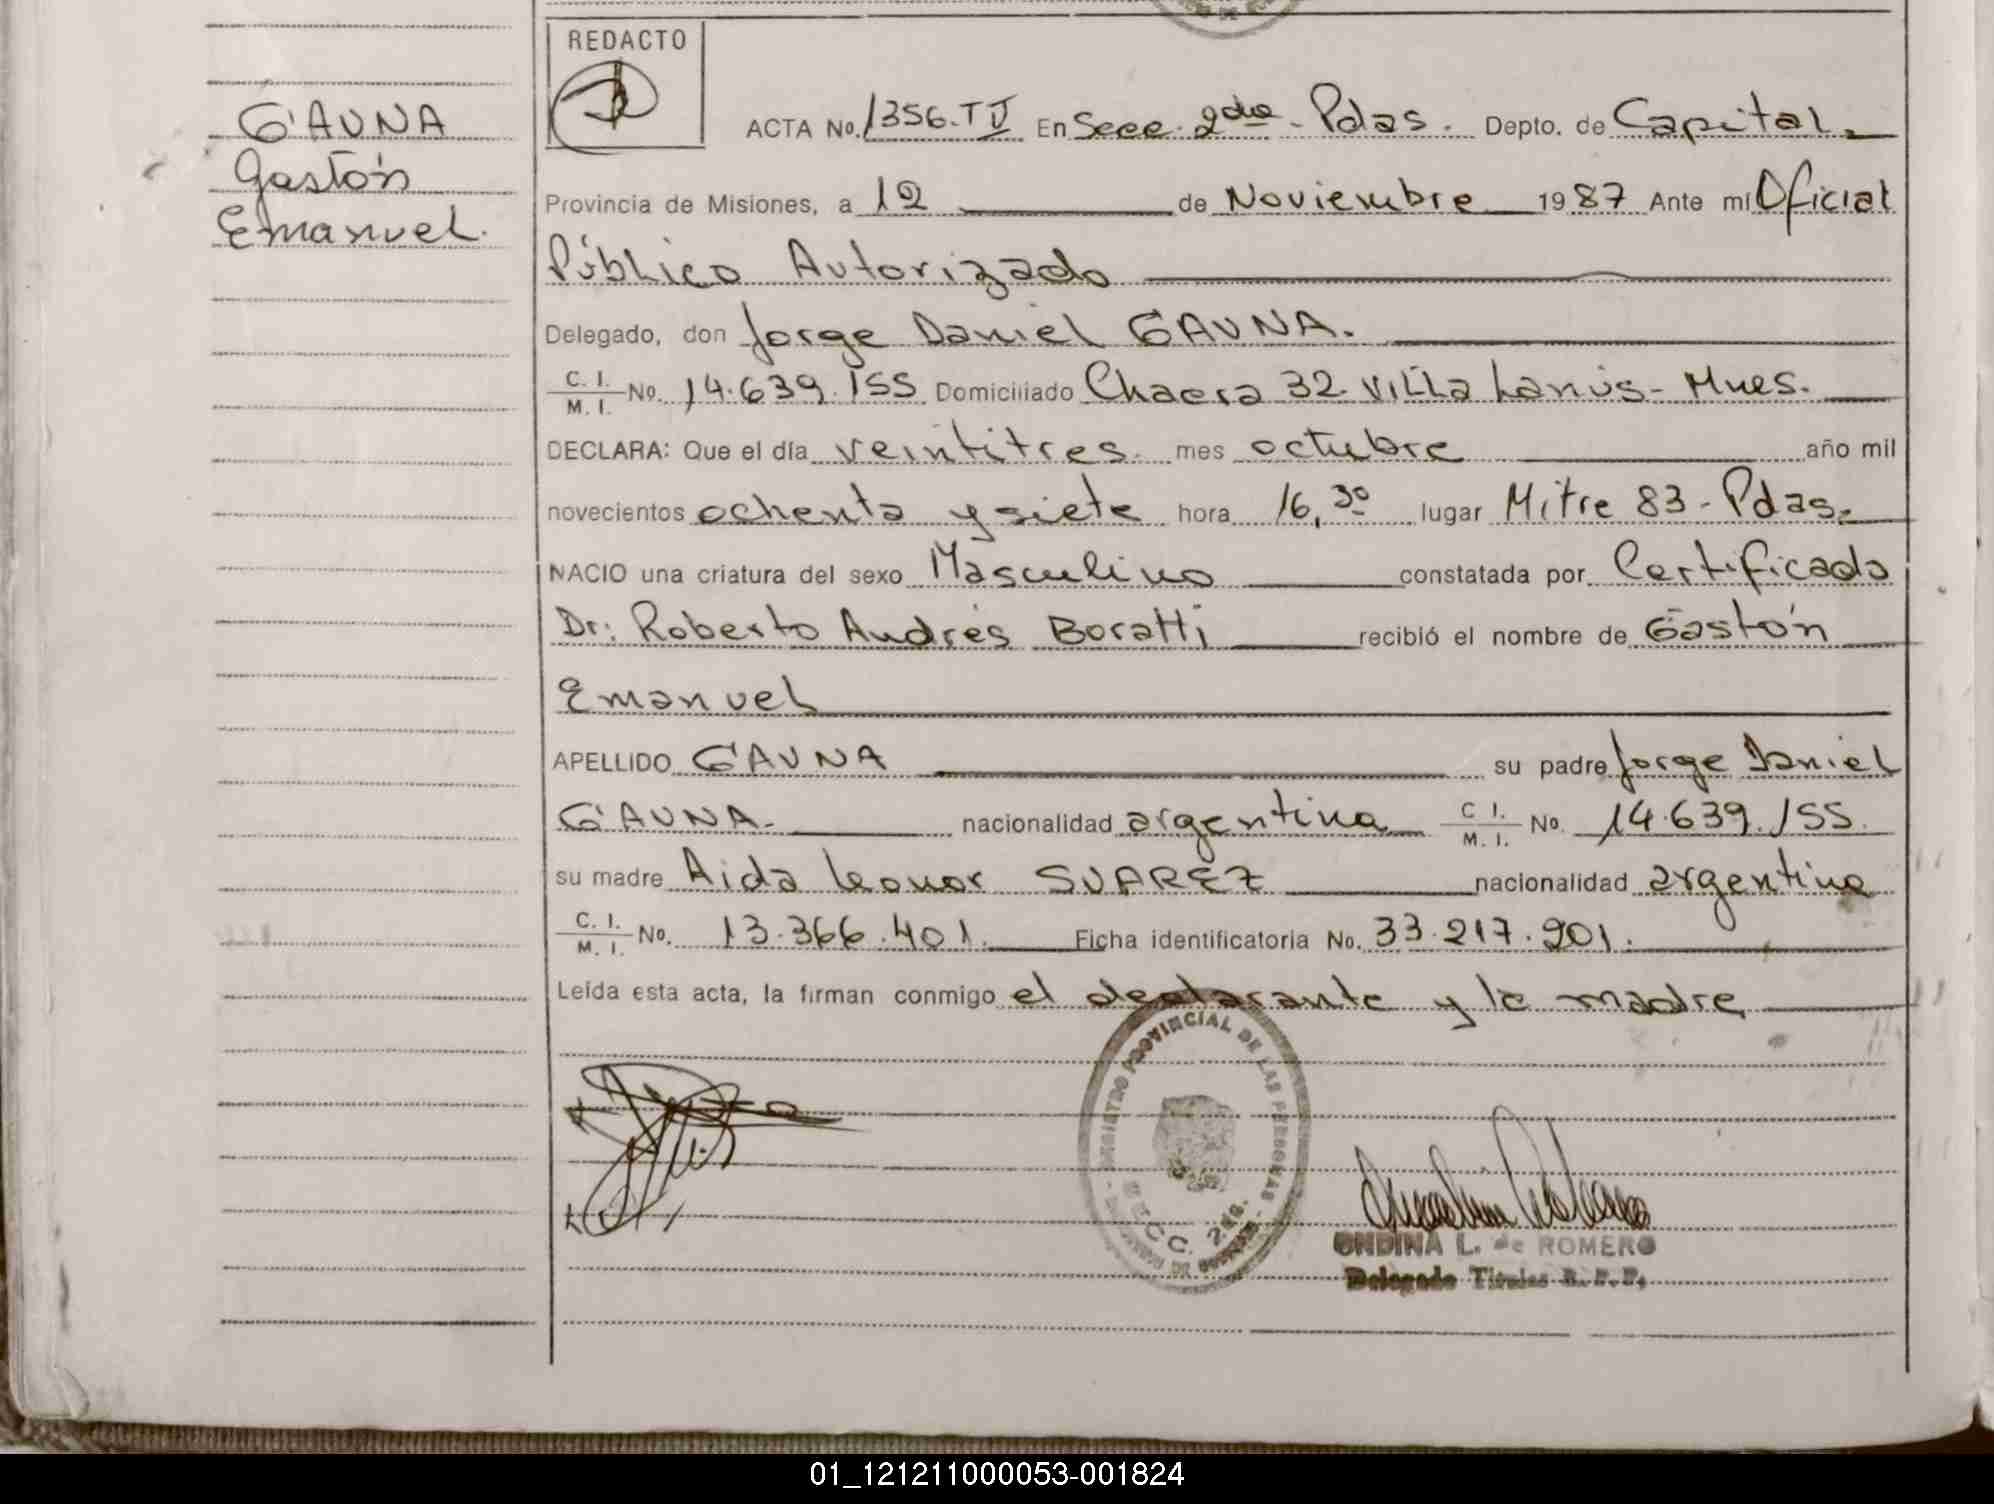 REDACTO
GAUNA
Gastón
Emanuel.
ACTA No. 1356. T V En Secc. 2da - Pdas. Depto. de Capital.
Provincia de Misiones, a 12 de Noviembre 1987 Ante mí Oficial
Público Autorizado
Delegado, don Jorge Daniel GAUNA.
C. I. / M. I. No. 14.639.155 Domiciliado Chacra 32. Villa Lanús - Mnes.
DECLARA: Que el día veintitres mes octubre año mil
novecientos ochenta y siete hora 16,30 lugar Mitre 83 - Pdas.
NACIO una criatura del sexo Masculino constatada por Certificado
Dr: Roberto Andrés Boratti recibió el nombre de Gastón
Emanuel
APELLIDO GAUNA su padre Jorge Daniel
GAUNA. nacionalidad argentina C I. / M. I. No. 14.639.155.
su madre Aida Leonor SUAREZ nacionalidad argentina
C. I. / M. I. No. 13.366.401. Ficha identificatoria No. 33.217.901.
Leída esta acta, la firman conmigo el declarante y la madre
REGISTRO PROVINCIAL DE LAS PERSONAS
SECC. 2da.
ONDINA L. de ROMERO
Delegado Titular R.P.P.
01_121211000053-001824